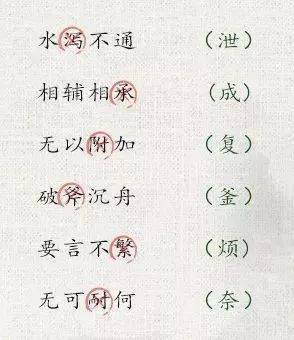 水泻不通 （泄）
相辅相承 （成）
无以附加 （复）
破斧沉舟 （釜）
要言不繁 （烦）
无可耐何 （奈）